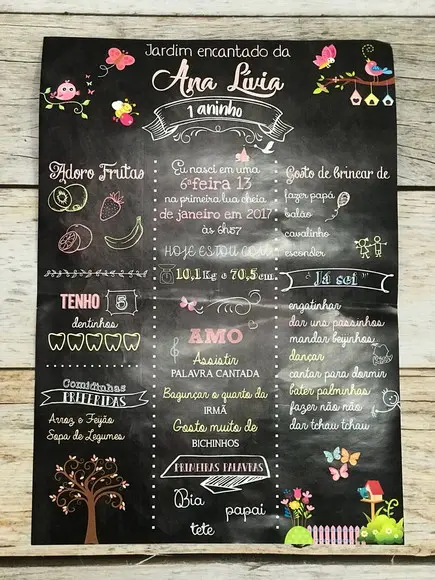 Jardim encantado da
Ana Lívia
1 aninho
Adoro Frutas
TENHO 5
dentinhos
Comidinhas
PREFERIDAS
Arroz e Feijão
Sopa de Legumes
Eu nasci em uma
6ª feira 13
na primeira lua cheia
de janeiro em 2017
às 6h57
HOJE ESTOU COM
10,1 Kg e 70,5 cm
AMO
Assistir
PALAVRA CANTADA
Bagunçar o quarto da
IRMÃ
Gosto muito de
BICHINHOS
PRIMEIRAS PALAVRAS
Bia
papai
tete
Gosto de brincar de
fazer papá
balão
cavalinho
esconder
Já sei
engatinhar
dar uns passinhos
mandar beijinhos
dançar
cantar para dormir
bater palminhas
fazer não não
dar tchau tchau